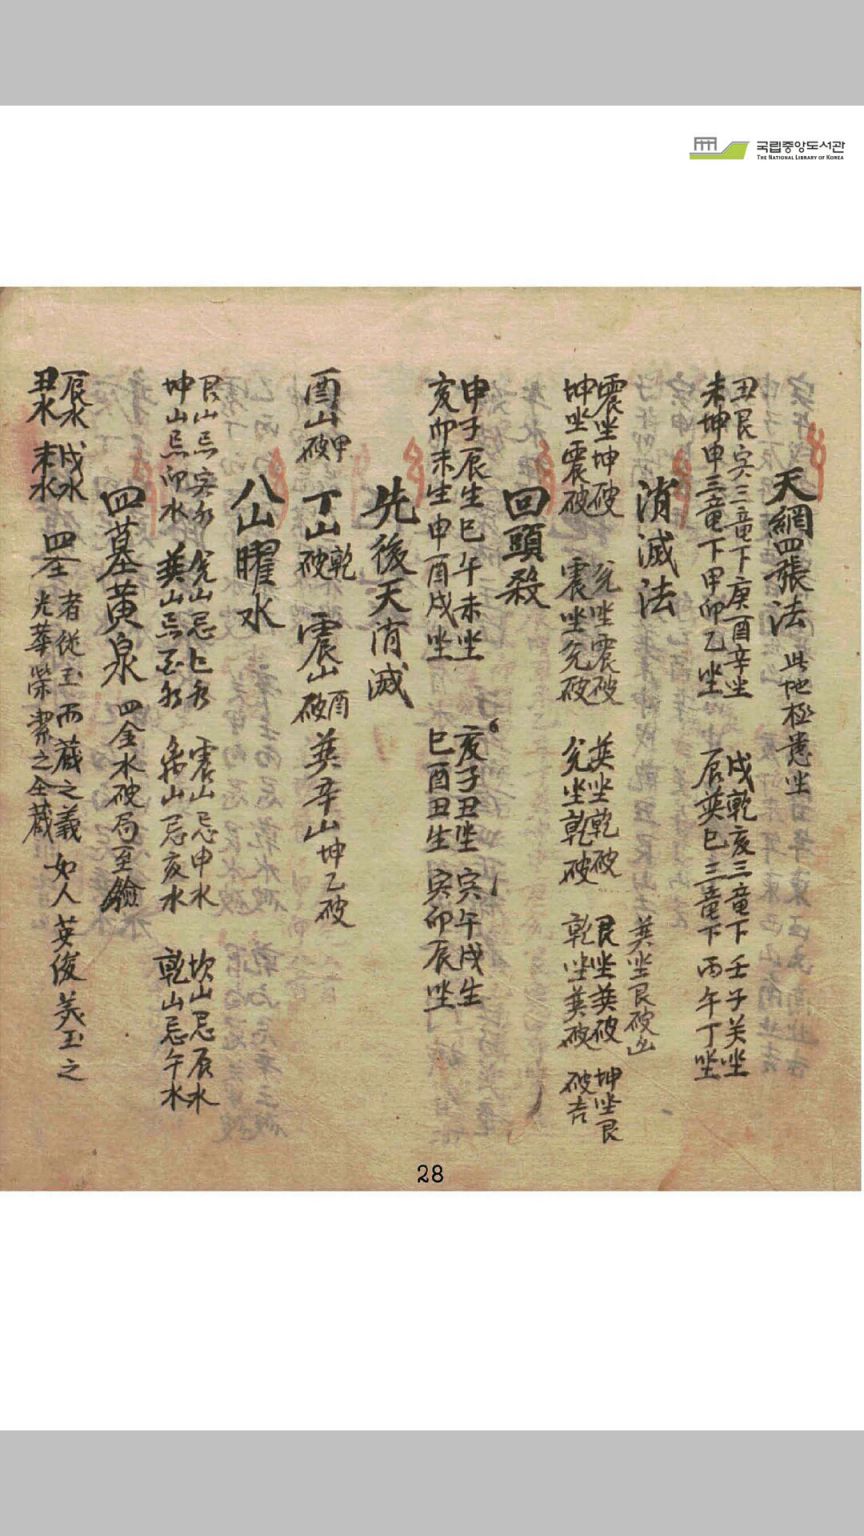 국립중앙도서관
THE NATIONAL LIBRARY OF KOREA
天網四張法 此地極
丑艮寅三竜下庚酉辛坐 戌乾亥三竜下壬子癸坐
未坤申三竜下甲卯乙坐 辰巽巳三竜下丙午丁坐
消滅法 巽坐艮破凶
震坐坤破 兌坐震破 巽坐乾破 艮坐巽破 坤坐艮
坤坐震破 震坐兌破 兌坐乾破 乾坐巽破 破吉
回頭殺
申子辰生巳午未坐 亥子丑坐 寅午戌生
亥卯未生申酉戌坐 巳酉丑生 寅卯辰坐
先後天消滅
酉山甲破 丁山乾破 震山酉破 巽辛山坤乙破
八山曜水
艮山忌寅水 兌山忌巳水 震山忌申水 坎山忌辰水
坤山忌卯水 巽山忌酉水 离山忌亥水 乾山忌午水
四墓黃泉 四金水破局至
辰水 戌水 四金 者從玉而蔵之義 如人 英俊美玉之
丑水 未水 光華榮潔之全蔵
28